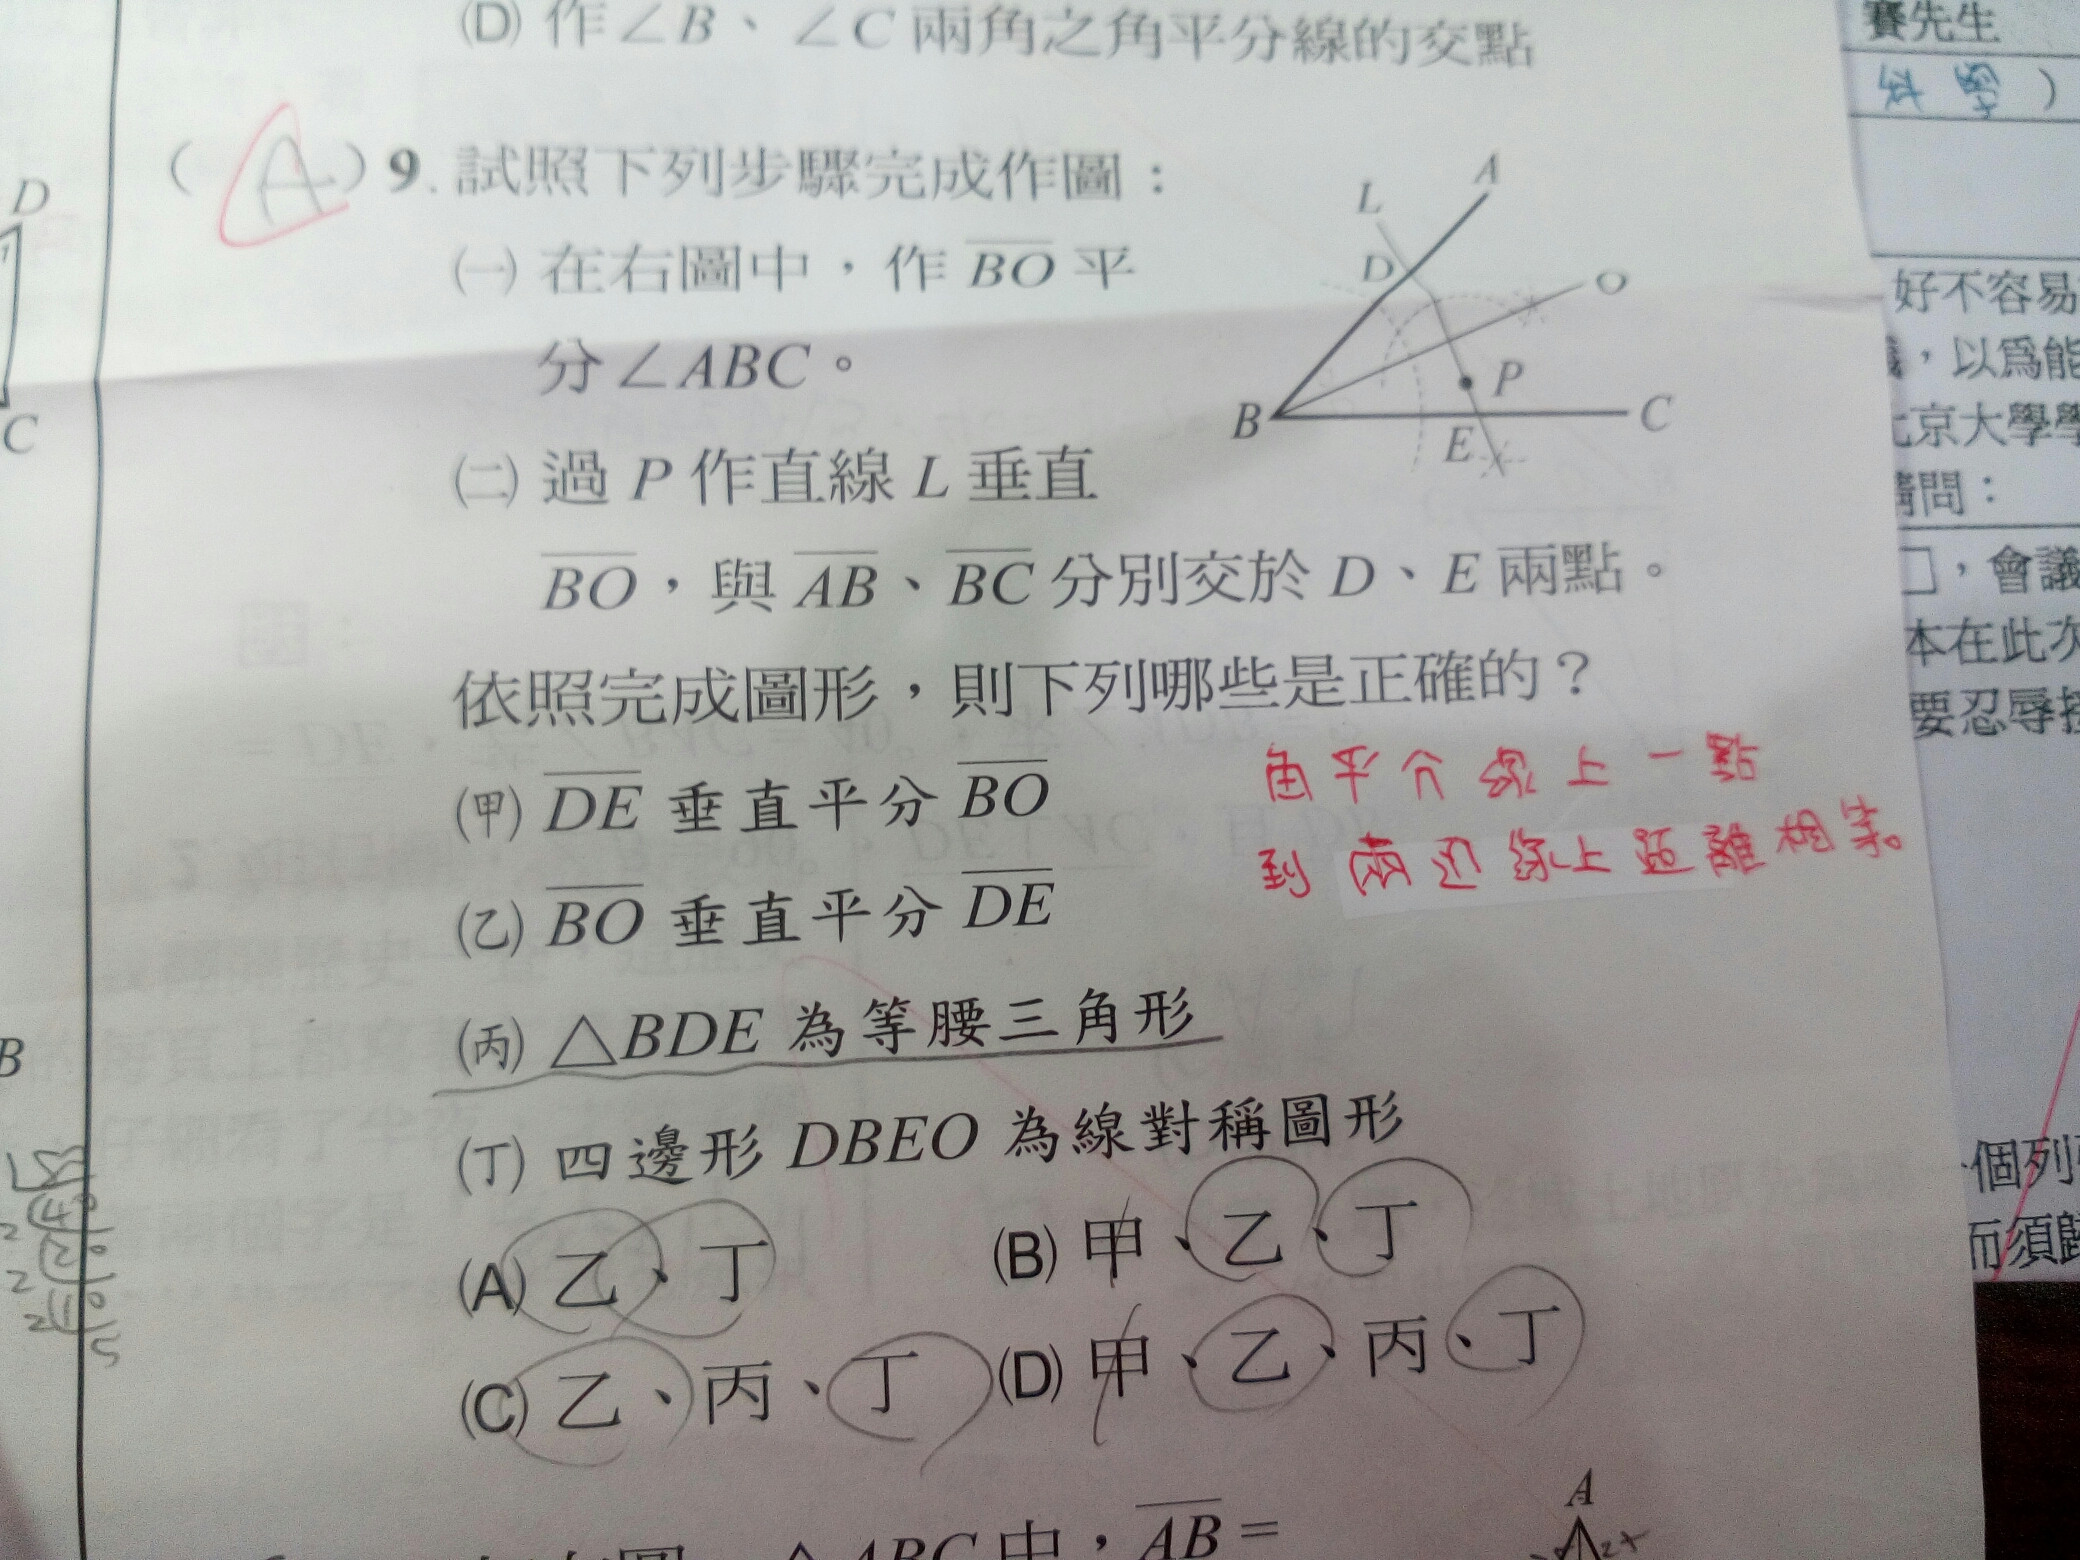 (D) 作∠B、∠C 兩角之角平分線的交點
( A ) 9. 試照下列步驟完成作圖：
㈠ 在右圖中，作 BO 平
分∠ABC。
㈡ 過 P 作直線 L 垂直
BO，與 AB、BC 分別交於 D、E 兩點。
依照完成圖形，則下列哪些是正確的？
(甲) DE 垂直平分 BO
(乙) BO 垂直平分 DE
(丙) △BDE 為等腰三角形
(丁) 四邊形 DBEO 為線對稱圖形
(A) 乙、丁
(B) 甲、乙、丁
(C) 乙、丙、丁
(D) 甲、乙、丙、丁
L
A
D
O
P
B
C
E
角平分線上一點
到兩邊線上距離相等。
△ABC 中，AB =
A
D
C
B
賽先生
科學 )
好不容易
，以為能
北京大學學
請問：
，會議
本在此次
要忍辱
個列
而須歸